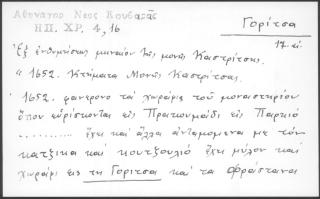 Αθηναγορ Νεος Κουβαρᾶς
ΗΠ. ΧΡ. 4, 16
Γορίτσα
17 αἰ.
Ἐξ ἐνθυμήσεως μηναίου τῆς μονῆς Καστρίτσης.
" 1652. Κτήματα Μονῆς Καστρίτσας.
1652. φανερονο τα χοραφια τοῦ μοναστηρίου
ὅπου εὑρίσκονται εἰς Πρακουμάδι εἰς Παρκιό
.......... ἔχει καὶ ἄλλα ἀνταμομενα με τόν
κατζικα καί κουτζουλιό ἔχει μύλον καί
χωραφι εις τη Γοριτσα και τα Φράστανα